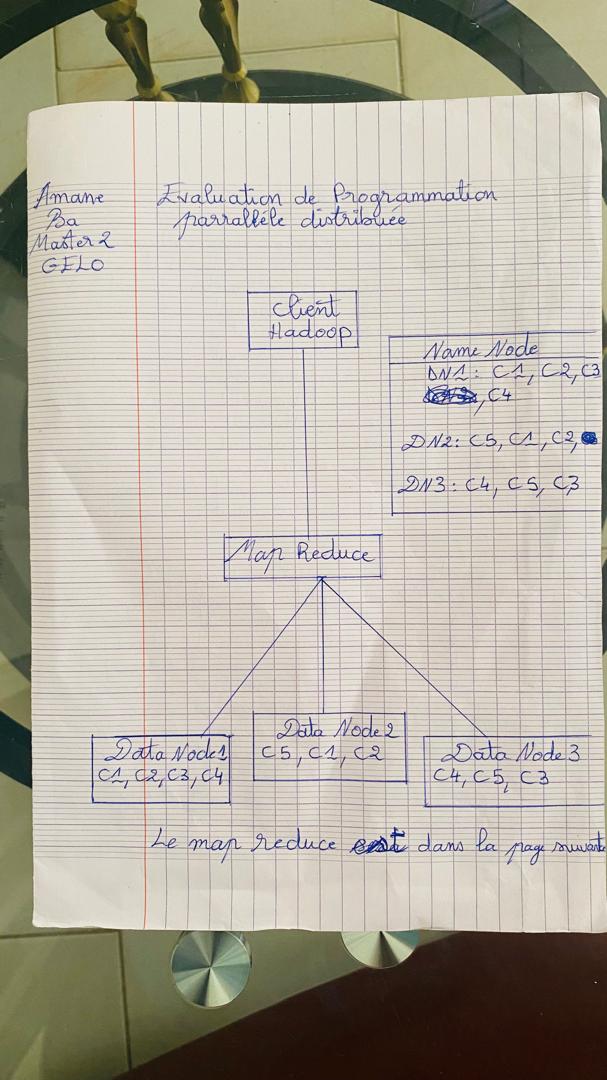 Amane
Ba
Master 2
GELO
Evaluation de Programmation
parrallèle distribuée
Client
Hadoop
Name Node
DN1 : C1, C2, C3
, C4
DN2 : C5, C1, C2,
DN3 : C4, C5, C3
Map Reduce
Data Node1
C1, C2, C3, C4
Data Node 2
C5, C1, C2
Data Node 3
C4, C5, C3
Le map reduce est dans la page suivante